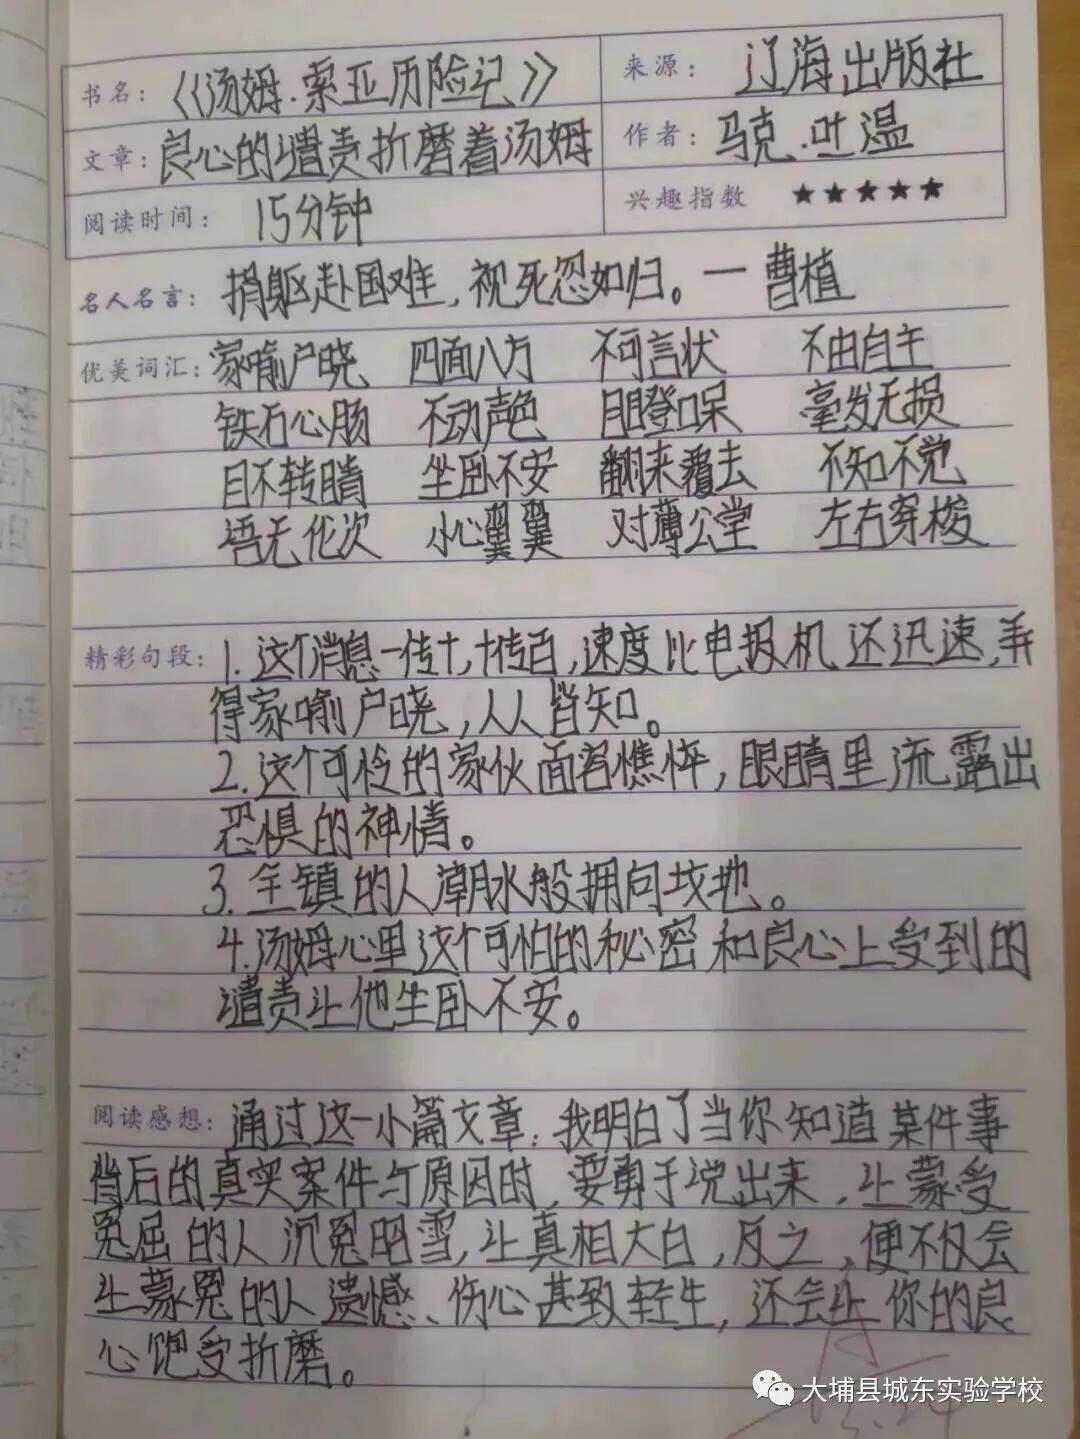 书名：《汤姆·索亚历险记》 来源：辽海出版社
文章：良心的谴责折磨着汤姆 作者：马克·吐温
阅读时间：15分钟 兴趣指数 ★★★★★
名人名言：捐躯赴国难，视死忽如归。一曹植
优美词汇：家喻户晓 四面八方 不可言状 不由自主
铁石心肠 不动声色 目瞪口呆 毫发无损
目不转睛 坐卧不安 翻来覆去 不知不觉
语无伦次 小心翼翼 对薄公堂 左右穿梭
精彩句段：1.这个消息一传十，十传百，速度比电报机还迅速，弄
得家喻户晓，人人皆知。
2.这个可怜的家伙面容憔悴，眼睛里流露出
恐惧的神情。
3.全镇的人潮水般拥向坟地。
4.汤姆心里这个可怕的秘密和良心上受到的
谴责让他坐卧不安。
阅读感想：通过这一小篇文章：我明白了当你知道某件事
背后的真实案件与原因时，要勇于说出来，让蒙受
冤屈的人沉冤昭雪，让真相大白，反之，便不仅会
让蒙冤的人遗憾、伤心甚致轻生，还会让你的良
心饱受折磨。
大埔县城东实验学校